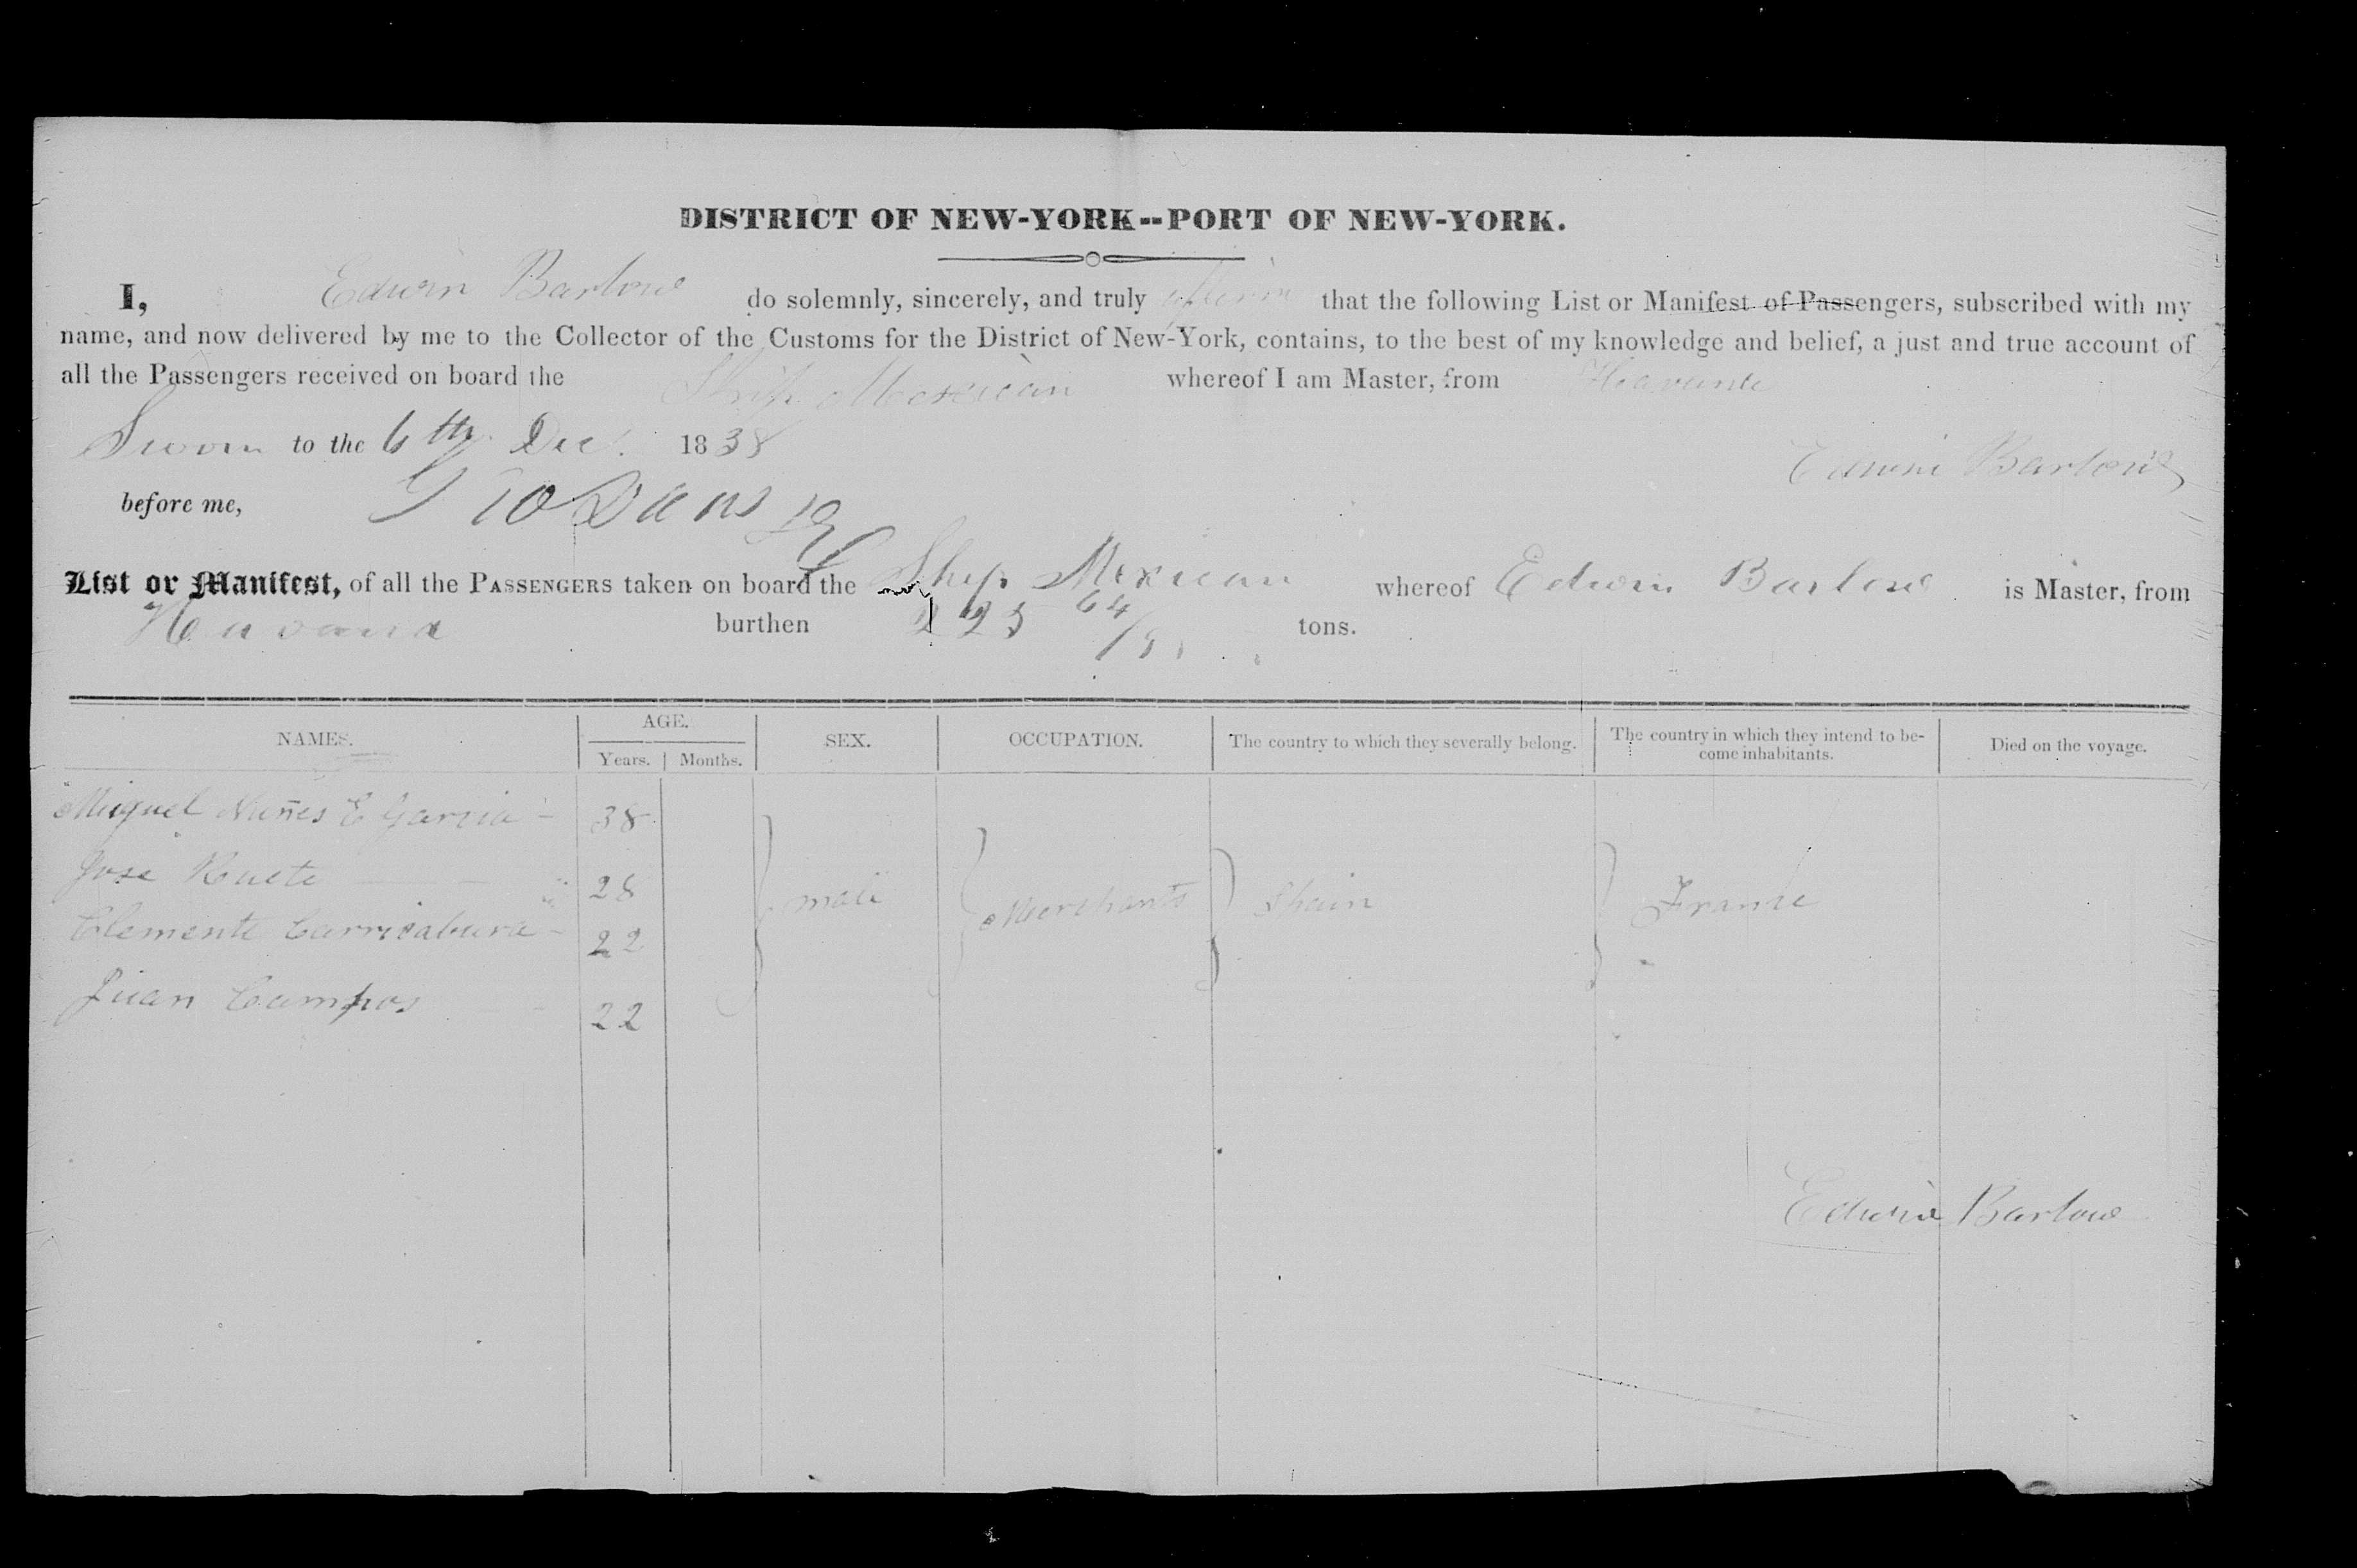 DISTRICT OF NEW-YORK--PORT OF NEW-YORK.
I, Edwin Barlow do solemnly, sincerely, and truly affirm that the following List or Manifest of Passengers, subscribed with my
name, and now delivered by me to the Collector of the Customs for the District of New-York, contains, to the best of my knowledge and belief, a just and true account of
all the Passengers received on board the Ship Mexican whereof I am Master, from Havana
Sworn to the 6th Dec. 1838
Edwin Barlow
before me,
List or Manifest, of all the PASSENGERS taken on board the Ship Mexican whereof Edwin Barlow is Master, from
Havana burthen 64 tons.
NAMES. AGE. SEX. OCCUPATION. The country to which they severally belong. The country in which they intend to be-
come inhabitants. Died on the voyage.
Years. Months.
Miguel Nuñes E Garcia 38
Jose 28
male Merchants Spain France
Clemente Carricabura 22
Juan Campos 22
Edwin Barlow